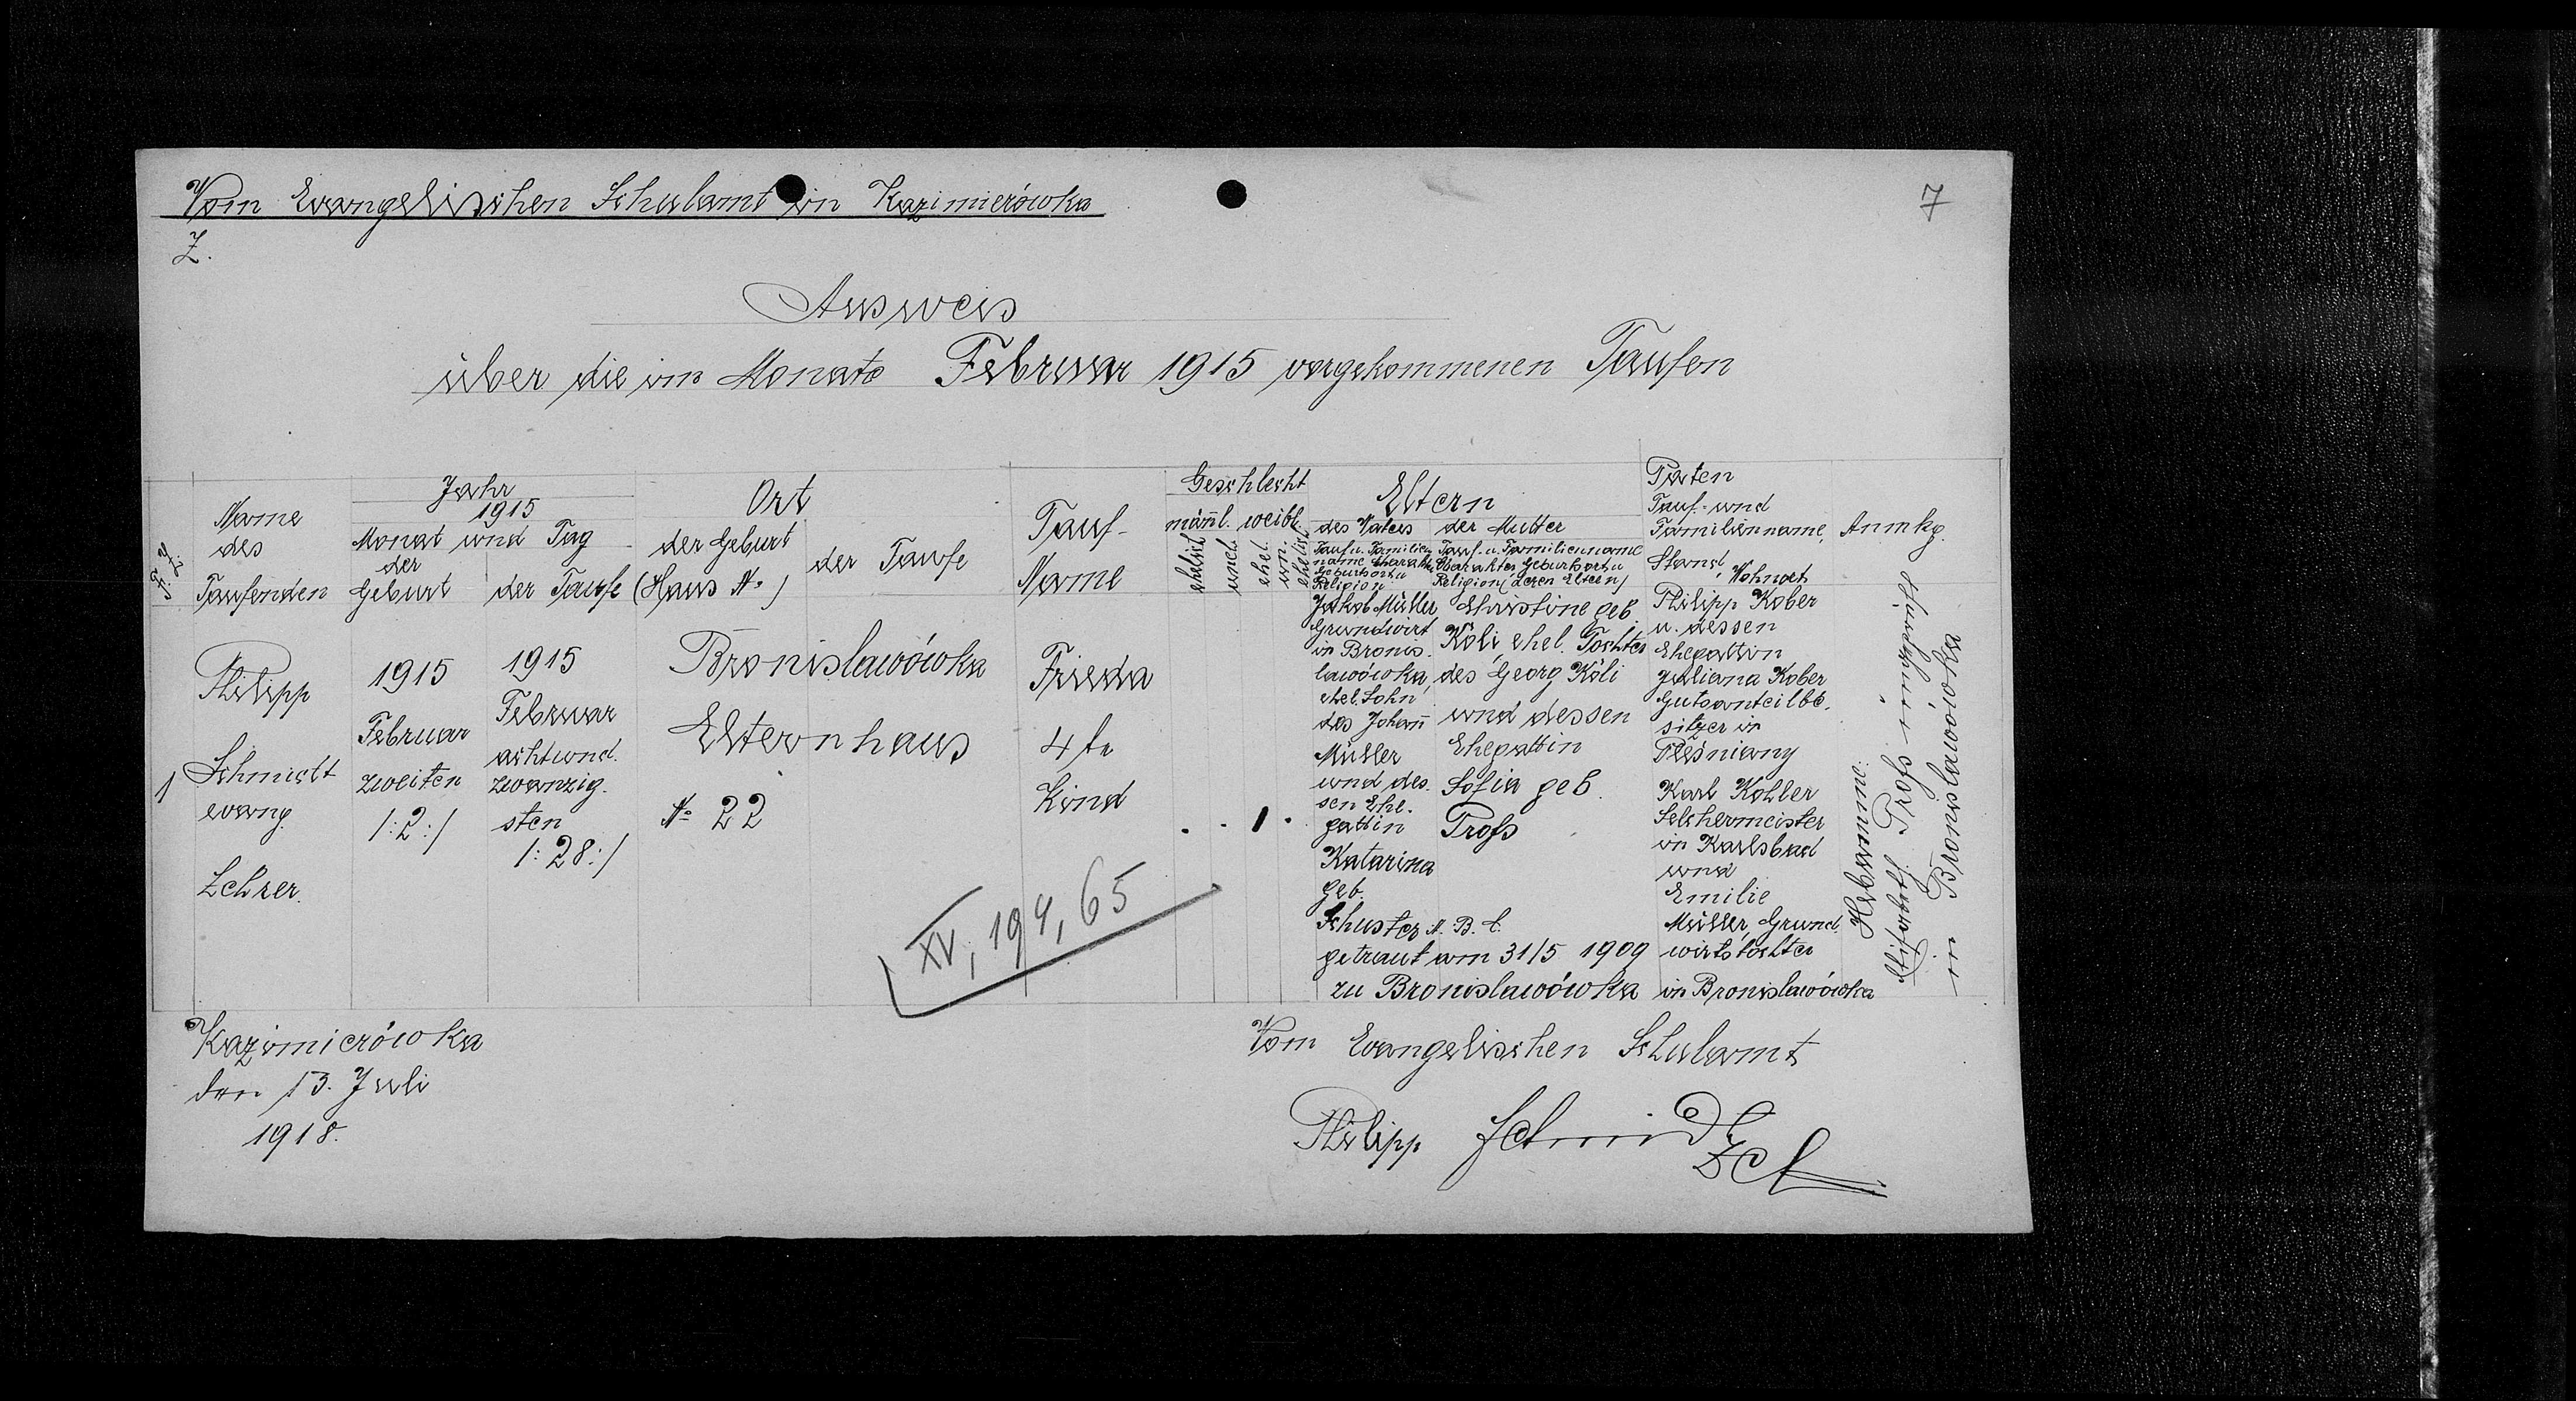 Vom Evangelischen Schulamt in Kazimierówka
7
Z.
Ausweis
über die im Monate Februar 1915 vorgekommenen Taufen
Name
des
Taufenden
Jahr
1915
Monat und Tag
der
Geburt
der Taufe
Ort
der Geburt
(Haus No)
der Taufe
Tauf-
Name
Geschlecht
männl. weibl.
ehelich
unehel.
ehel.
un-
ehelich
Eltern
des Vaters
der Mutter
Tauf u. Familien
name Charakter
Geburtsort u
Religion
Tauf- u. Familienname
Charakter Geburtsort u
Religion (deren Eltern)
Paten
Tauf- und
Familienname,
Stand, Wohnort
Anmkg.
1
Philipp
Schmidt
evang.
Lehrer.
1915
Februar
zweiten
/:2:/
1915
Februar
achtund-
zwanzig-
sten
/:28:/
Bronislawówka
Elternhaus
No 22
Frieda
4 te
Kind
. . 1 .
Jakob Müller
Grundwirt
in Bronis-
lawówka,
ehel. Sohn
des Johann
Müller
und des-
sen Ehe-
gattin
Katarina
geb.
Schuster
Christine geb.
Köli, ehel. Tochter
des Georg Köli
und dessen
Ehegattin
Sofia geb.
Profs
A. B. C.
getraut am 31/5 1909
zu Bronislawówka
Philipp Kober
u. dessen
Ehegattin
Juliana Kober
Gutsanteilbe-
sitzer in
Pleśniany
Karl Kohler
Selchermeister
in Karlsbad
und
Emilie
Müller, Grund-
wirtstochter
in Bronislawówka
Hebamme:
in Bronislawówka
XV, 194, 65
Kazimierówka
den 13. Juli
1918.
Vom Evangelischen Schulamt
Philipp Schmidt